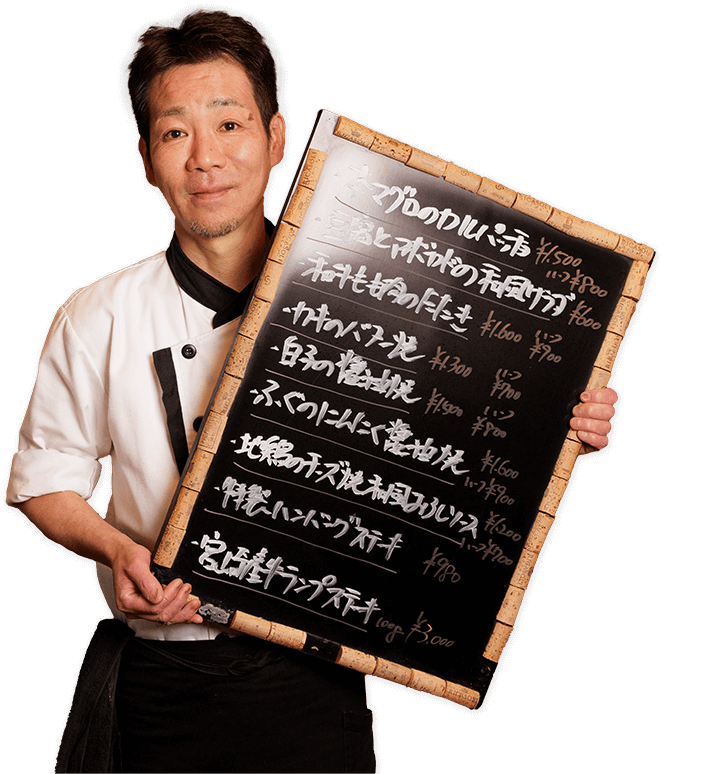 マグロのカルパッチョ ¥1,500 ハーフ¥800
・豆腐とアボカドの和風サラダ ¥600
・和牛もも肉のたたき ¥1,600 ハーフ¥900
・カキのバター焼 ¥1300 ハーフ¥700
・白子の醤油焼 ¥1,500 ハーフ¥800
・ふぐのにんにく醤油焼 ¥1,600 ハーフ¥900
・地鶏のチーズ焼和風おろしソース ¥1,200 ハーフ¥700
・特製ハンバーグステーキ ¥980
・宮崎産牛ランプステーキ 100g ¥3,000